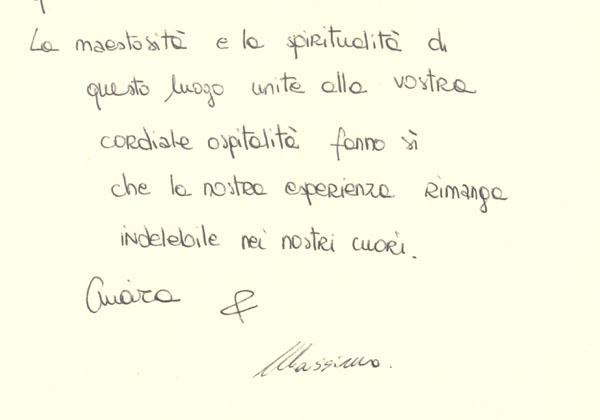 La maestosità e la spiritualità di
questo luogo unite alla vostra
cordiale ospitalità fanno sì
che la nostra esperienza rimanga
indelebile nei nostri cuori.
Chiara &
Massimo.